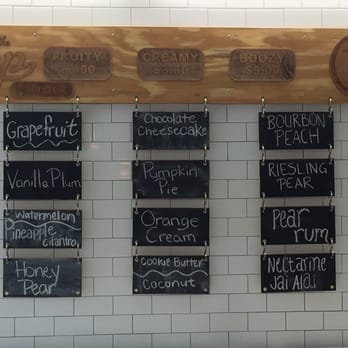 FRUITY
CREAMY
BOOZY
Grapefruit
Vanilla Plum
Watermelon
Pineapple
cilantro
Honey
Pear
Chocolate
Cheesecake
Pumpkin
Pie
Orange
Cream
Cookie Butter
Coconut
BOURBON
PEACH
RIESLING
PEAR
Pear
rum
Nectarine
Jai Alai